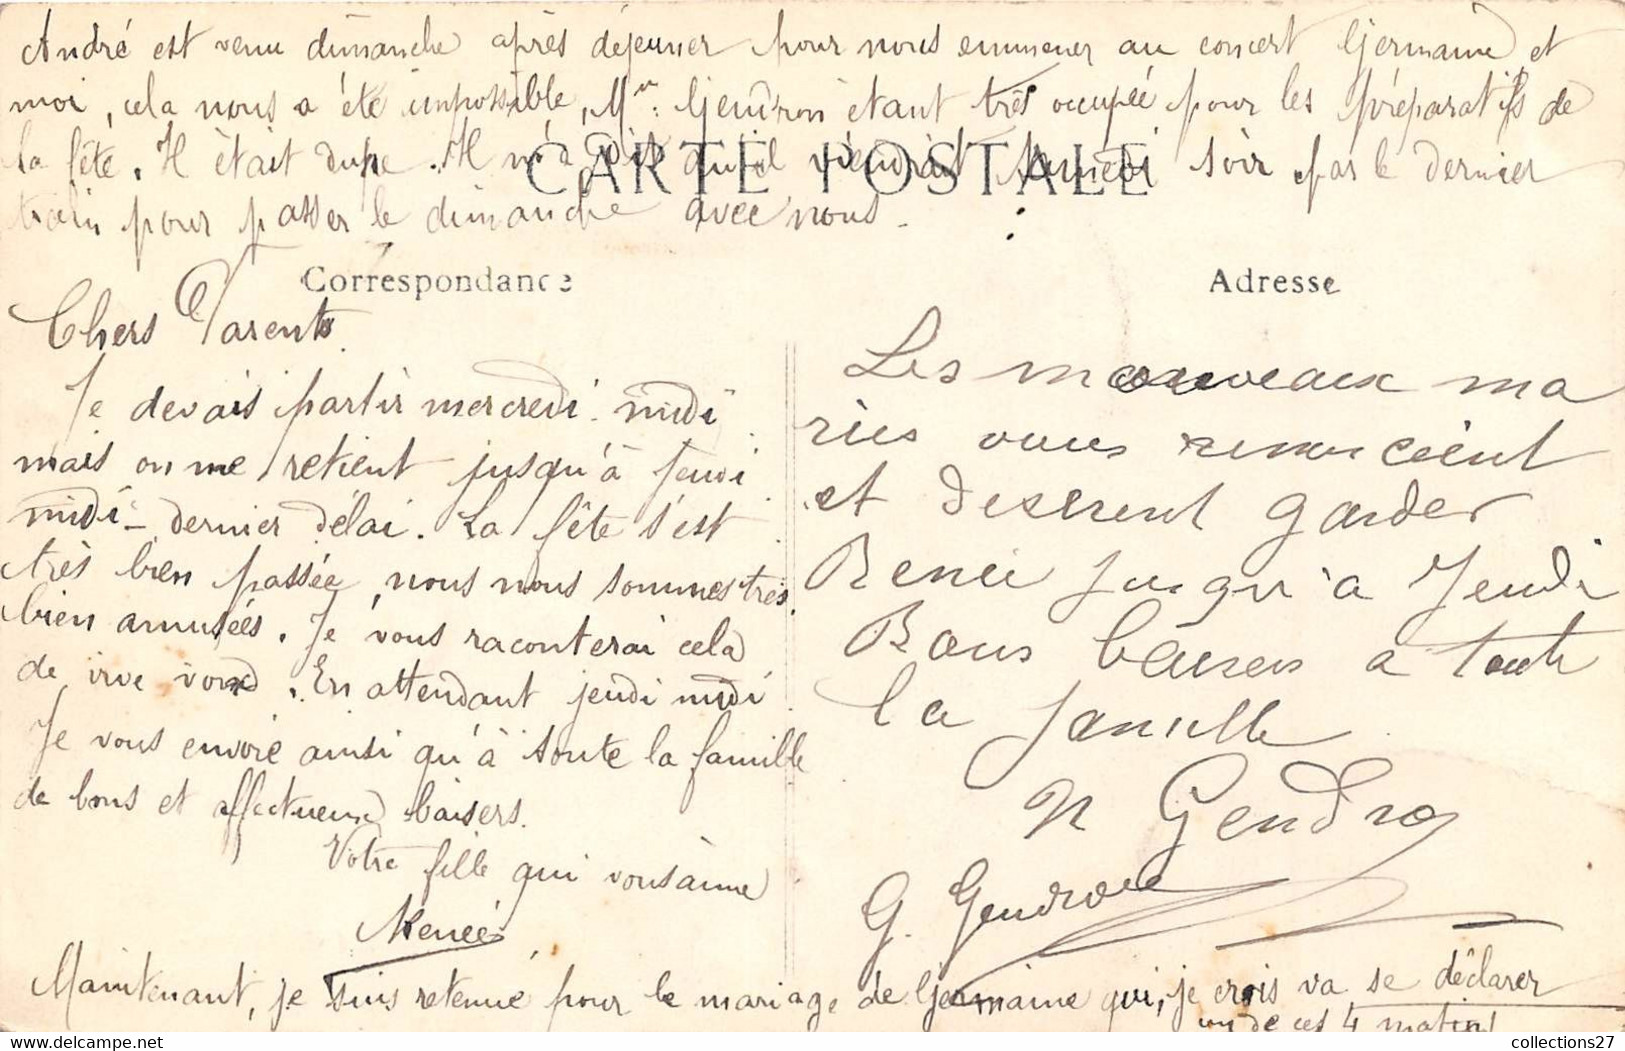 André est venu dimanche après déjeuner pour nous emmener au concert Germaine et
moi, cela nous a été impossible, Mr: Gendron étant très occupée pour les préparatifs de
la fête. Il était dupe. Il m'a dit qu'il viendrait samedi soir par le dernier
train pour passer le dimanche avec nous.
CARTE POSTALE
Correspondance
Chers Parents
Je devais partir mercredi midi
mais on me retient jusqu'à jeudi
midi - dernier délai. La fête s'est
très bien passée, nous nous sommes très
bien amusées. Je vous raconterai cela
de vive voix. En attendant jeudi midi
Je vous envoie ainsi qu'à toute la famille
de bons et affectueux baisers.
Votre fille qui vous aime
Renée
Maintenant, je suis retenue pour le mariage de Germaine qui, je crois va se déclarer
un de ces 4 matins!
Adresse
Les nouveaux ma
ries vous remercient
et desirent garder
Renée jusqu'a Jeudi
Bons baisers a toute
la famille
Gendron
G. Gendron
collections27